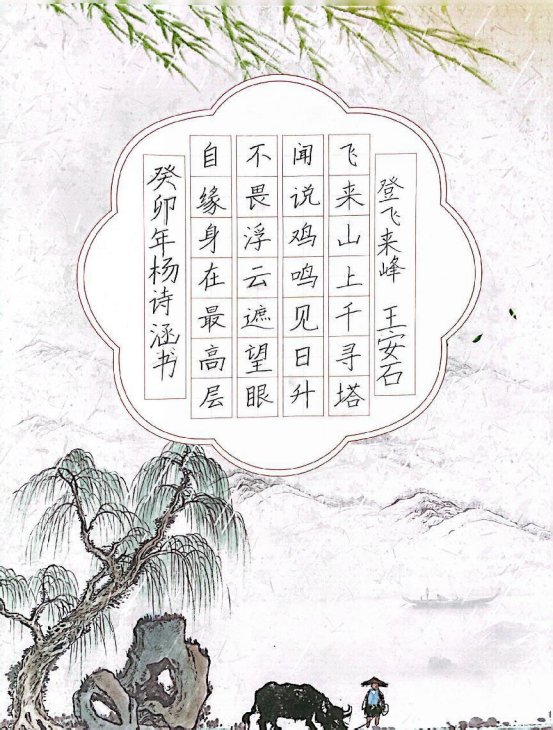 登飞来峰 王安石
飞来山上千寻塔
闻说鸡鸣见日升
不畏浮云遮望眼
自缘身在最高层
癸卯年杨诗涵书